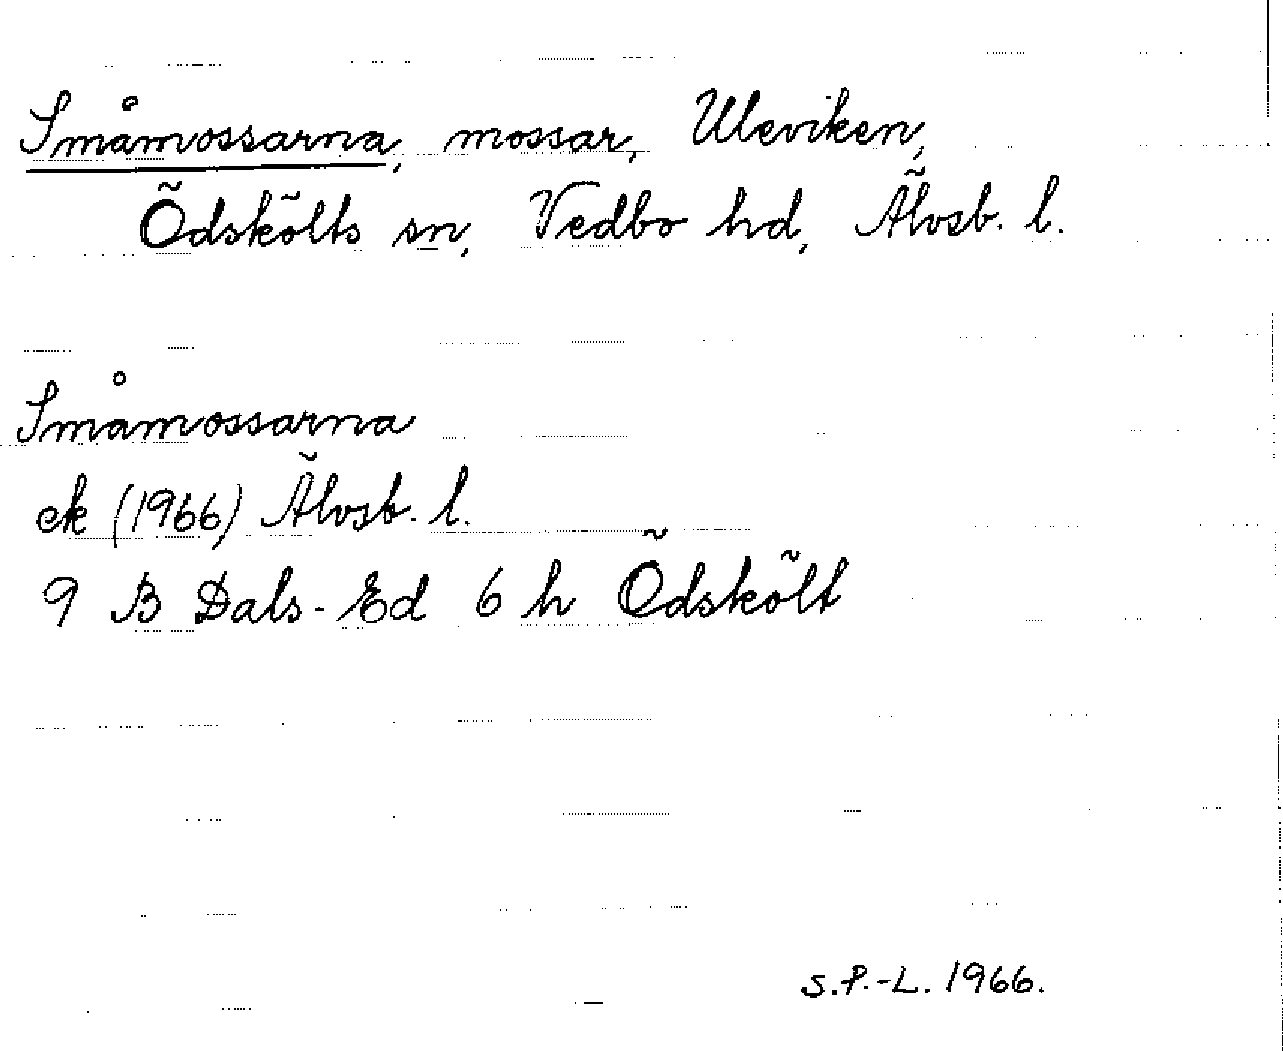 Småmossarna, mossar, Uleviken,
Ödskölts sn, Vedbo hd, Älvsb. l.
Småmossarna
ek (1966) Älvsb. l.
9 B Dals-Ed 6 h Ödskölt
S.P.-L. 1966.